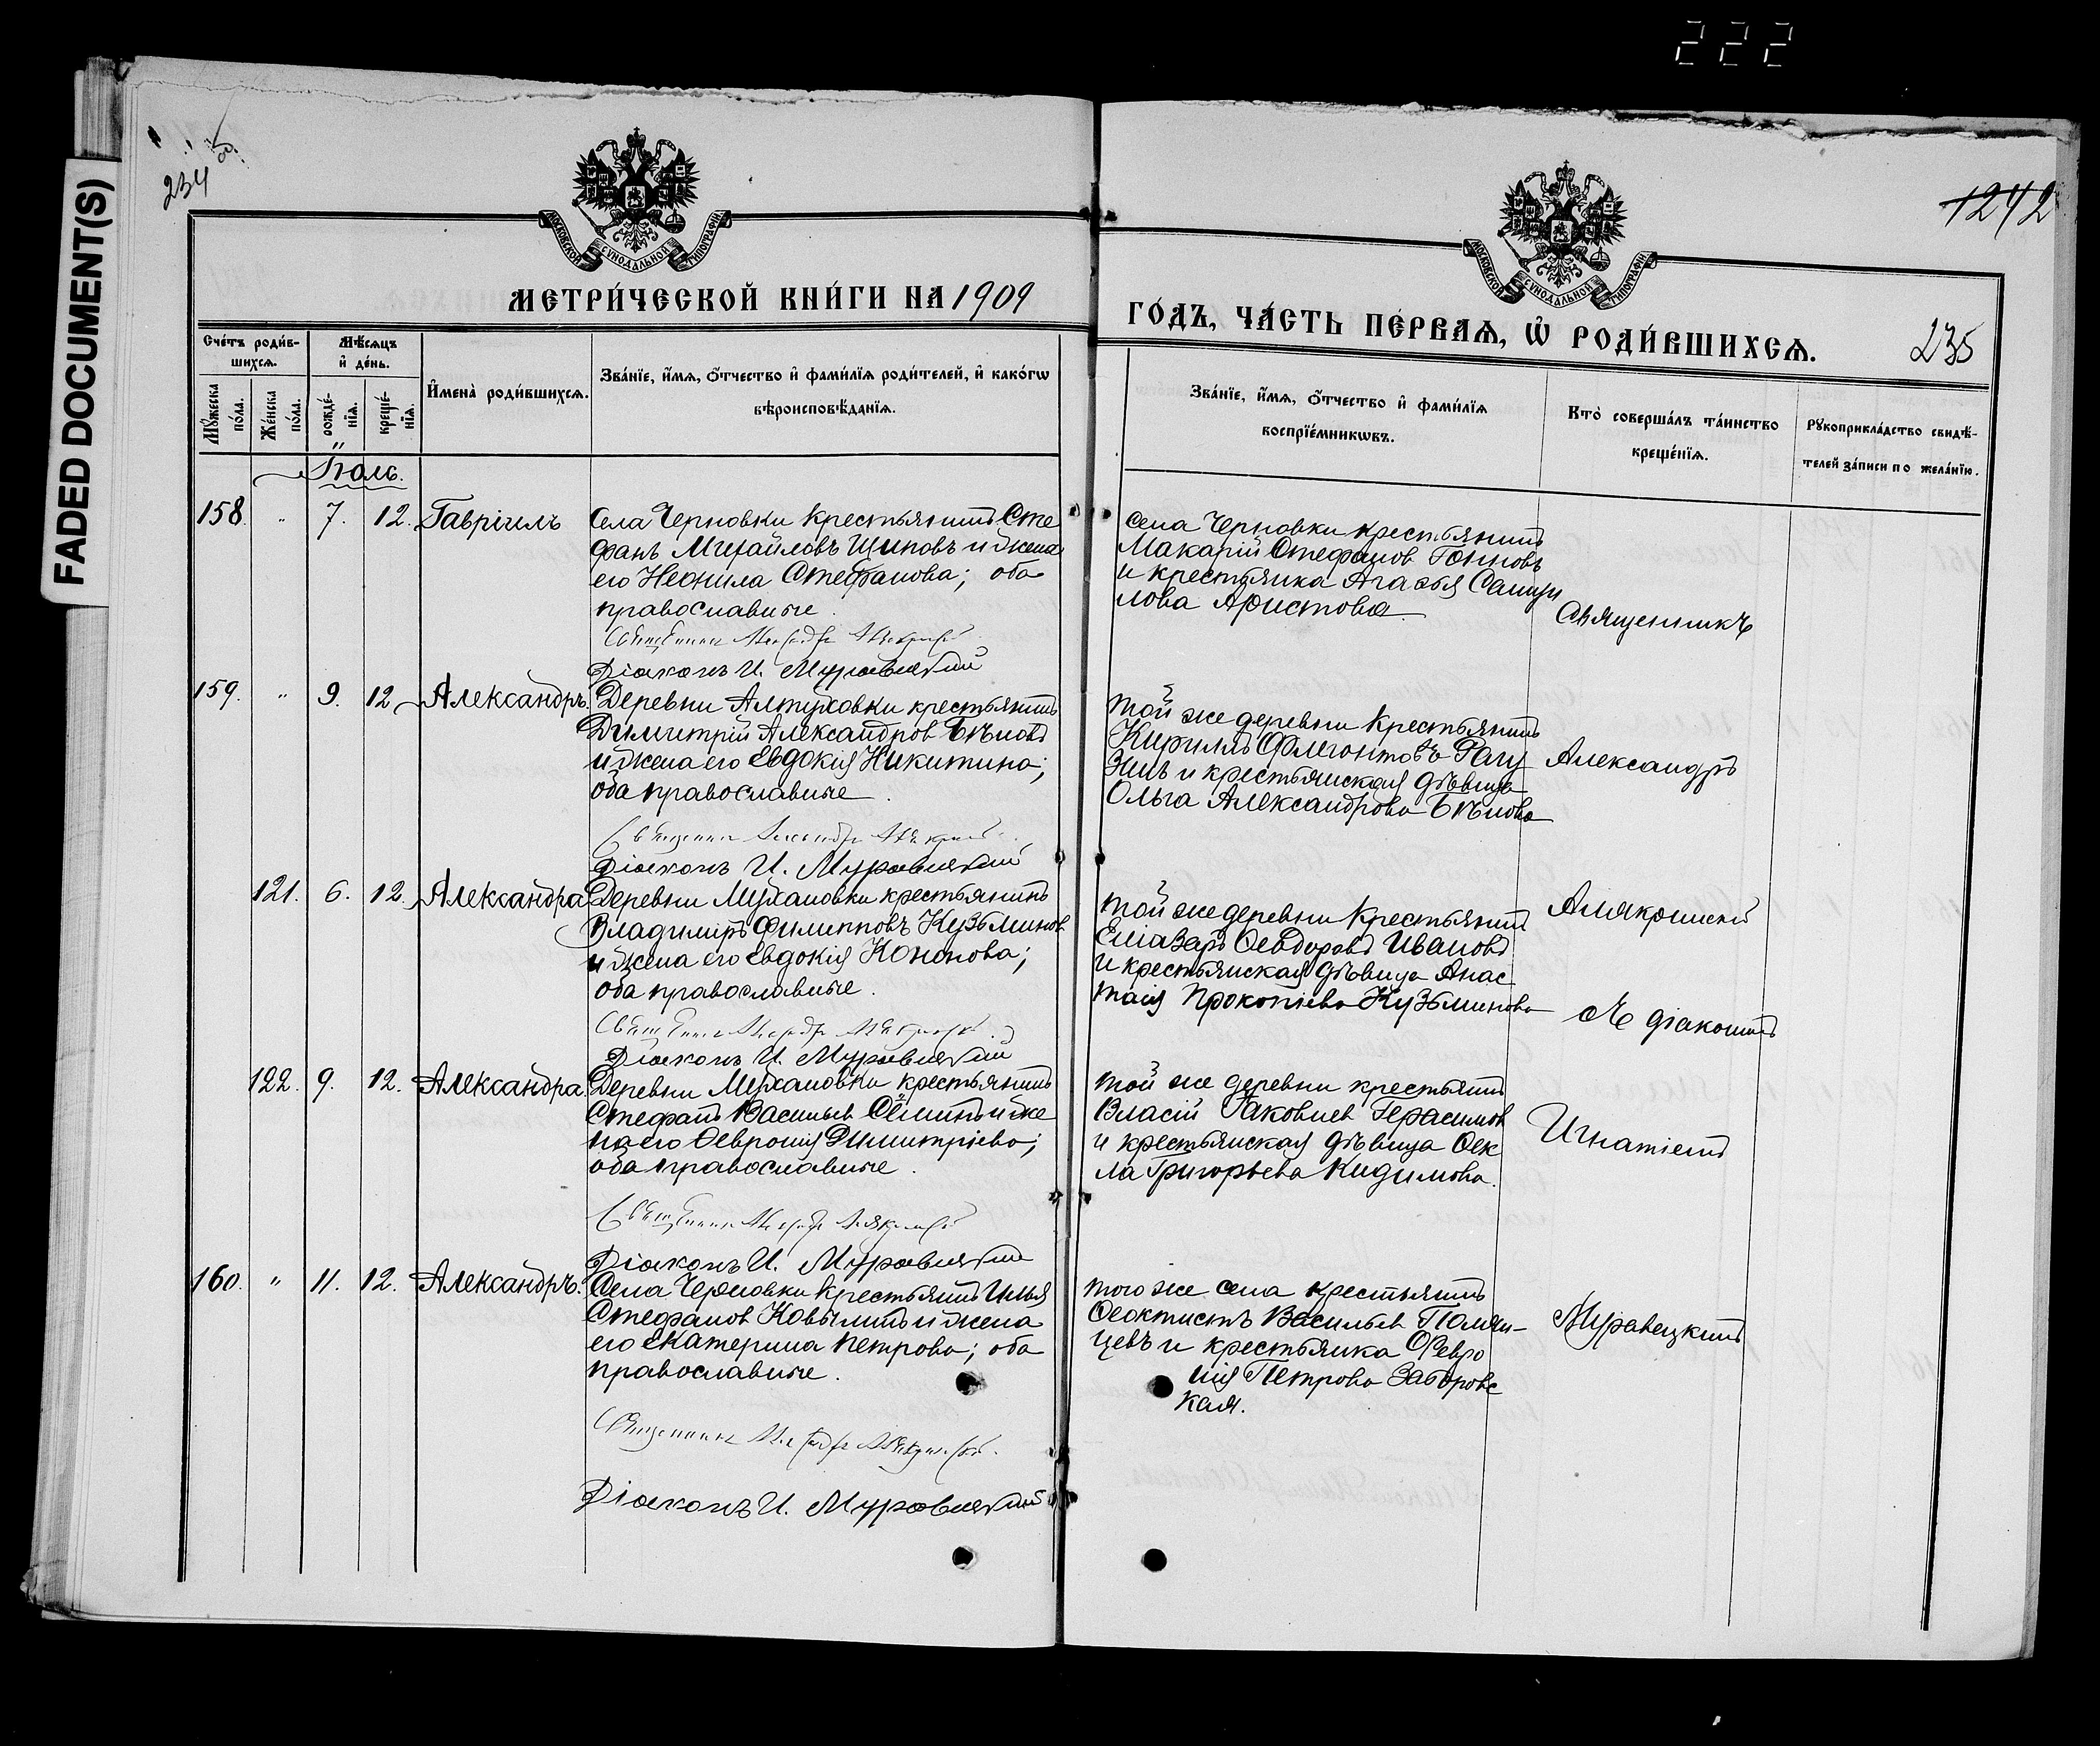 222
FADED DOCUMENT(S)
234
1242
МОСКОВСКОЙ СѴНОДАЛЬНОЙ ТИПОГРАФІИ
МОСКОВСКОЙ СѴНОДАЛЬНОЙ ТИПОГРАФІИ
МЕТРИ́ЧЕСКОЙ КНИ́ГИ НА 1909
ГО́ДЪ, ЧА́СТЬ ПЕ́РВАѦ, Ѡ҆ РОДИ́ВШИХСѦ.
235
Сче́тъ роди́в-
шихсѧ.
Мѣ́сѧцъ
и҆ де́нь.
Мꙋ́жеска
по́ла.
Же́нска
по́ла.
рожде́-
нїѧ.
креще́-
нїѧ.
И҆мена̀ роди́вшихсѧ.
Зва́нїе, и҆́мѧ, ѻ҆́тчество и҆ фами́лїѧ роди́телей, и҆ како́гѡ
вѣроисповѣ́данїѧ.
Зва́нїе, и҆́мѧ, ѻ҆́тчество и҆ фами́лїѧ
воспрїе́мникѡвъ.
Кто̀ соверша́лъ та́инство
креще́нїѧ.
Рꙋкоприкла́дство свидѣ́-
телей за́писи по жела́нїю.
Іюль.
158. " 7. 12. Гавріилъ
Села Черновки крестьянинъ Сте
фанъ Михайловъ Щиповъ и жена
его Неонила Стефанова; оба
православные
Священникъ Александръ Алякринскій
Діаконъ И. Муравецкій
села Черновки крестьянинъ
Макарій Стефанов
и крестьянка Агафья Самуи
лова Аристова.
159. " 9. 12 Александръ.
Деревни Алтуховки крестьянинъ
Димитрій Александров Бѣловъ
и жена его Евдокія Никитина;
оба православные.
Священникъ Александръ Алякринскій
Діаконъ И. Муравецкій
той же деревни крестьянинъ
Кириллъ Флегонтовъ Рагу
зинъ и крестьянская дѣвица
Ольга Александрова Бѣлова
121. 6. 12. Александра
Деревни Мухановки крестьянинъ
Владиміръ Филипповъ Кузьминов
и жена его Евдокія Кононова;
оба православные.
Священникъ Александръ Алякринскій
Діаконъ И. Муравецкій
той же деревни крестьянинъ
Еліазаръ Ѳеодоровъ Ивановъ
и крестьянская дѣвица Анас
тасія Прокопіева Кузьминова
122. 9. 12. Александра.
Деревни Мухановки крестьянинъ
Стефанъ Васильев Сёминъ и же
на его Февронія Димитріева;
оба православные.
Священникъ Александръ Алякринскій
Діаконъ И. Муравецкій
той же деревни крестьянинъ
Власій Іаковлев Герасимов
и крестьянская дѣвица Ѳек
ла Григорьева Кидимова.
160. " 11. 12. Александръ.
Села Черновки крестьянинъ Илья
Стефанов Ковылинъ и жена
его Екатерина Петрова; оба
православные.
Священникъ Александръ Алякринскій.
Діаконъ И. Муравецкій
того же села крестьянинъ
Ѳеоктистъ Васильев Полян-
цевъ и крестьянка Февро
нія Петрова Заборовс
кая.
Священникъ
Александръ
Алякринскій
съ діакономъ
Игнатіемъ
Муравецкимъ